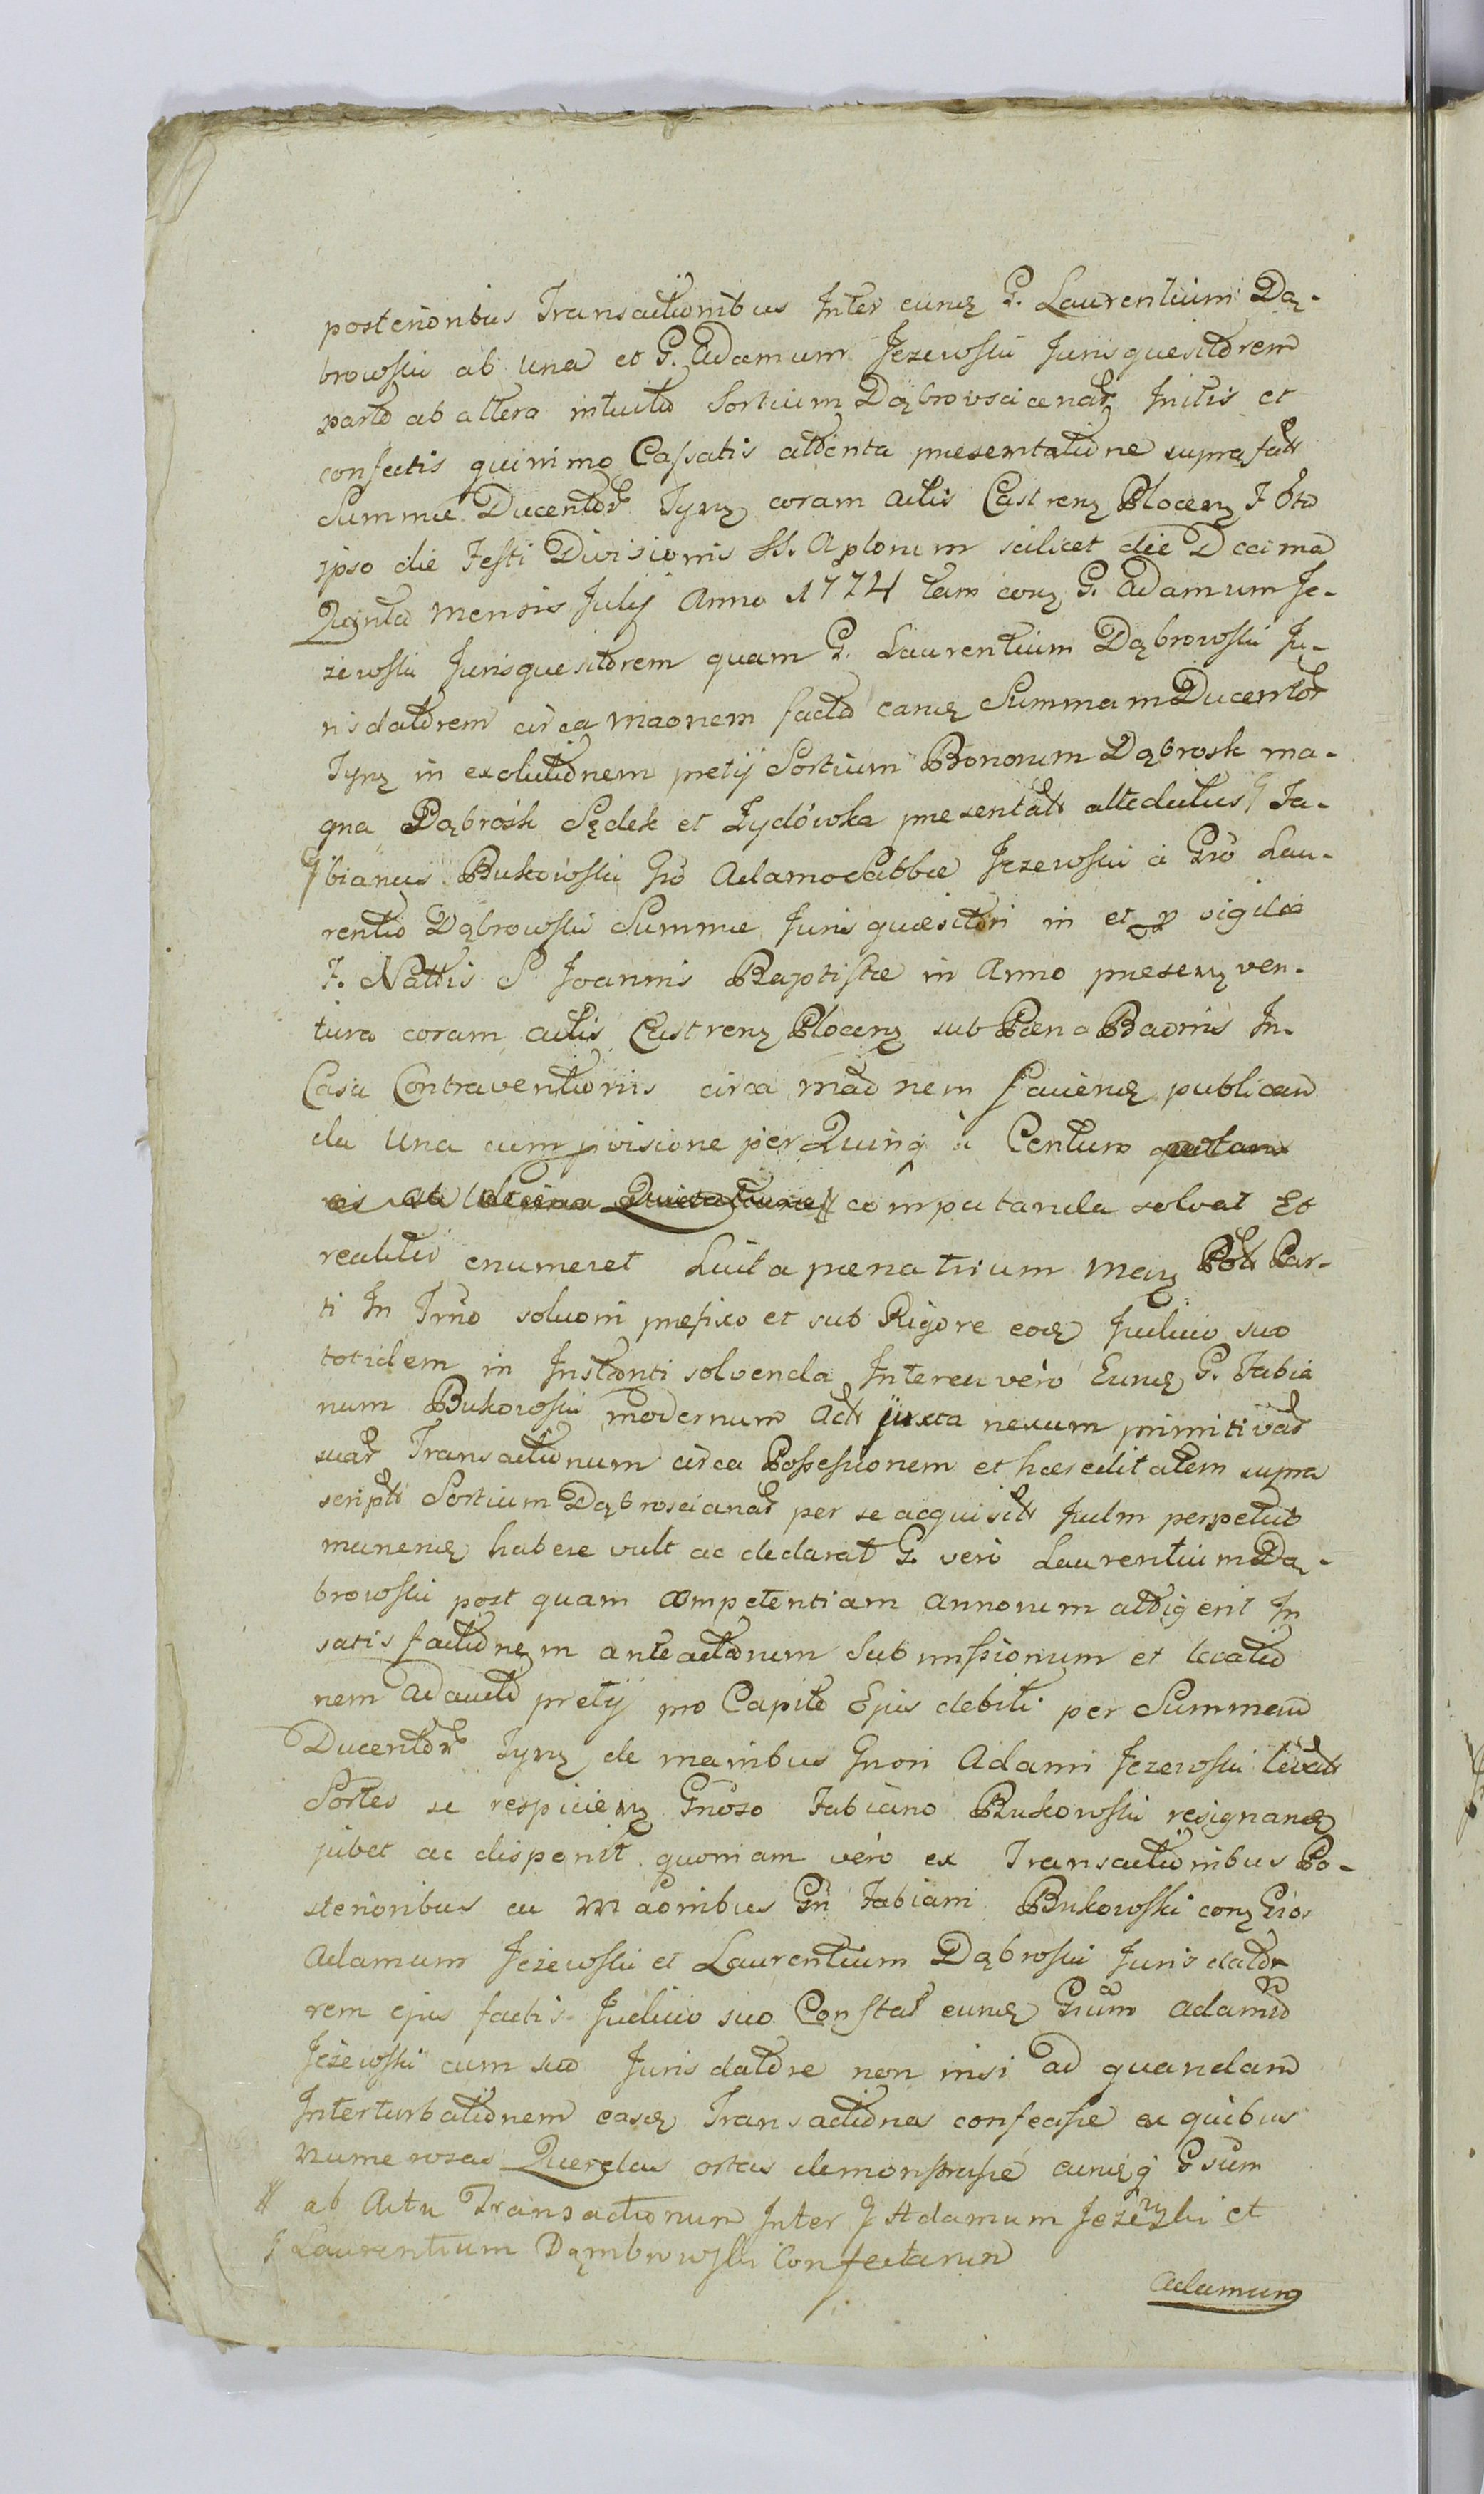 posterioribus Transactionibus Inter eunq G. Laurentium Dą-
browski ab una et G. Adamum Jezewski Jurisquesitorem
parte ab altera intuitu Sortium Dąbrovscicenar Initis et
confectis quinimo Cassatis attenta presentatione suprafatt
Summe Ducentor Tynz coram actis Castrenz Plocenz F 6to
ipso die Festi Divisionis SS. Aplorum scilicet die Decima
Quinta mensis Julij Anno 1774 tam conz G. Adamum Je-
zewski Jurisquesitorem quam G. Laurentium Dąbrowski Ju-
risdatorem circa maonem facto eanq Summam Ducentor
Tynz in exolutionem pretij Sortium Bonorum Dąbrosk ma-
gna Dąbrósk Sędek et Zydówka presentatt attedictus G Fa-
bianus Bukowski Gso Adamo Jezewski à Gso Lau-
rentio Dąbrowski Summe Juris quæsitori in et p vigilia
F. Nattis S Joannis Baptistæ in Anno presenz ven-
turo coram actis Castrenz Plocenz sub Pæna Baonis In
Casu Contraventionis circa maonem faciend publicand
da Una cum pvisione per Quinq à Centum
computanda solvat Et
realiter enumeret Luita pæna trium Marz Pott Par-
ti In Trno soluoni prefixo et sub Rigore eod Judicio suo
totidem in Instanti solvenda Interea verò Eunq G. Fabia
num Bukowski modernum Actt juxta nexum primitivar
suar Transactionum circa Possessionem et hæreditatem supra
scriptt Sortium Dąbroscianar per se acquisitt Judm perpetuo
manend habere vult ac declarat G. verò Laurentium Dą-
browski post quam competentiam annorum attigerit In
satisfactionem anteactorum Submissionum et levatio
nem adaucto pretij pro Capite Ejus debiti per Summam
Ducentor Tynz de manibus Gnori Adami Jezewski levatt
Sortes se respicienz Gnoso Fabiano Bukowski resignand
jubet ac disponit quoniam verò ex Transactionibus Po-
sterioribus eu Maonibus Gn Fabiani Bukowski conz Gsos
Adamum Jeżewski et Laurentium Dąbroski Juris dato
rem ejus factis Judicio suo Constat eunq Gsum Adamum
Jeżewski cum suo Juris datore non nisi ad quandam
Interturbationem easq Transactiones confecisse ex quibus
numerosas Querelas ortas demonstrasse eunq q Gsum
# ab Actu Transactionum Inter G Adamum Jeżewski et
G Laurentium Dąmbrowski Confectarum
Adamum